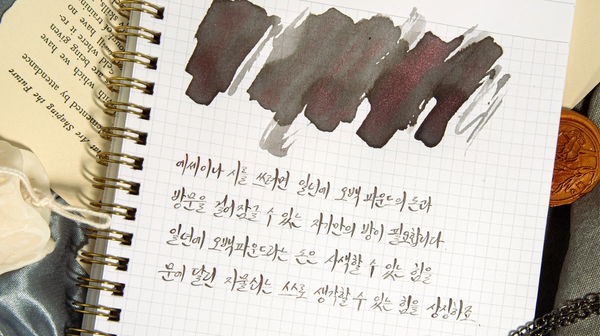 에세이나 시를 쓰려면 일년에 오백 파운드의 돈과
방문을 걸어 잠글 수 있는 자기만의 방이 필요합니다.
일년에 오백파운드라는 돈은 사색할 수 있는 힘을
문에 달린 자물쇠는 스스로 생각할 수 있는 힘을 상징하고.
at Are Shaping the Future
emented by attendance
with
we have
are being we given
and where it re
skills
raining